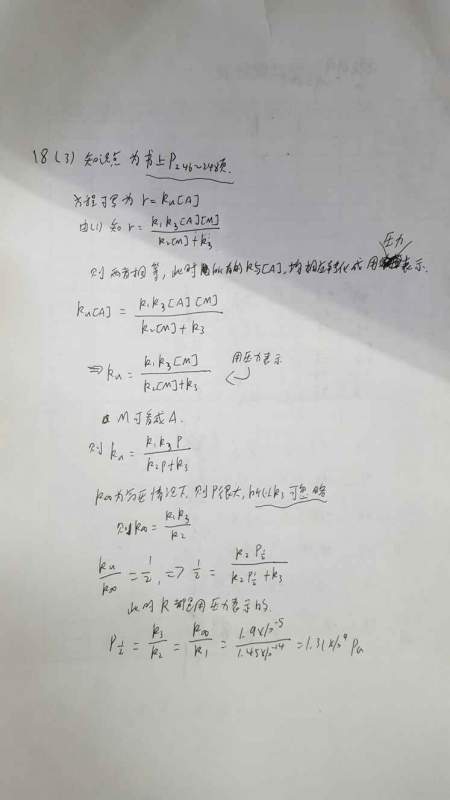 18(3) 知识点为书上P246~248页.
方程可写为 r=ku[A]
由(1)知 r= k1k3[A][M] / k2[M]+k3
压力
则两者相等, 此时 的k与[A], 均相应转化成用 表示.
ku[A] = k1k3[A][M] / k2[M]+k3
⇒ku= k1k3[M] / k2[M]+k3 用压力表示
M可看成A.
则 ku= k1k3P / k2P+k3
k∞为高压情况下, 则P很大, k3可忽略
则k∞= k1k3 / k2
ku/k∞ = 1/2, => 1/2 = k2P1/2 / k2P1/2+k3
此时k都是用压力表示的.
P1/2 = k3/k2 = k∞/k1 = 1.9×10^-5 / 1.45×10^-14 = 1.31×10^9 Pa